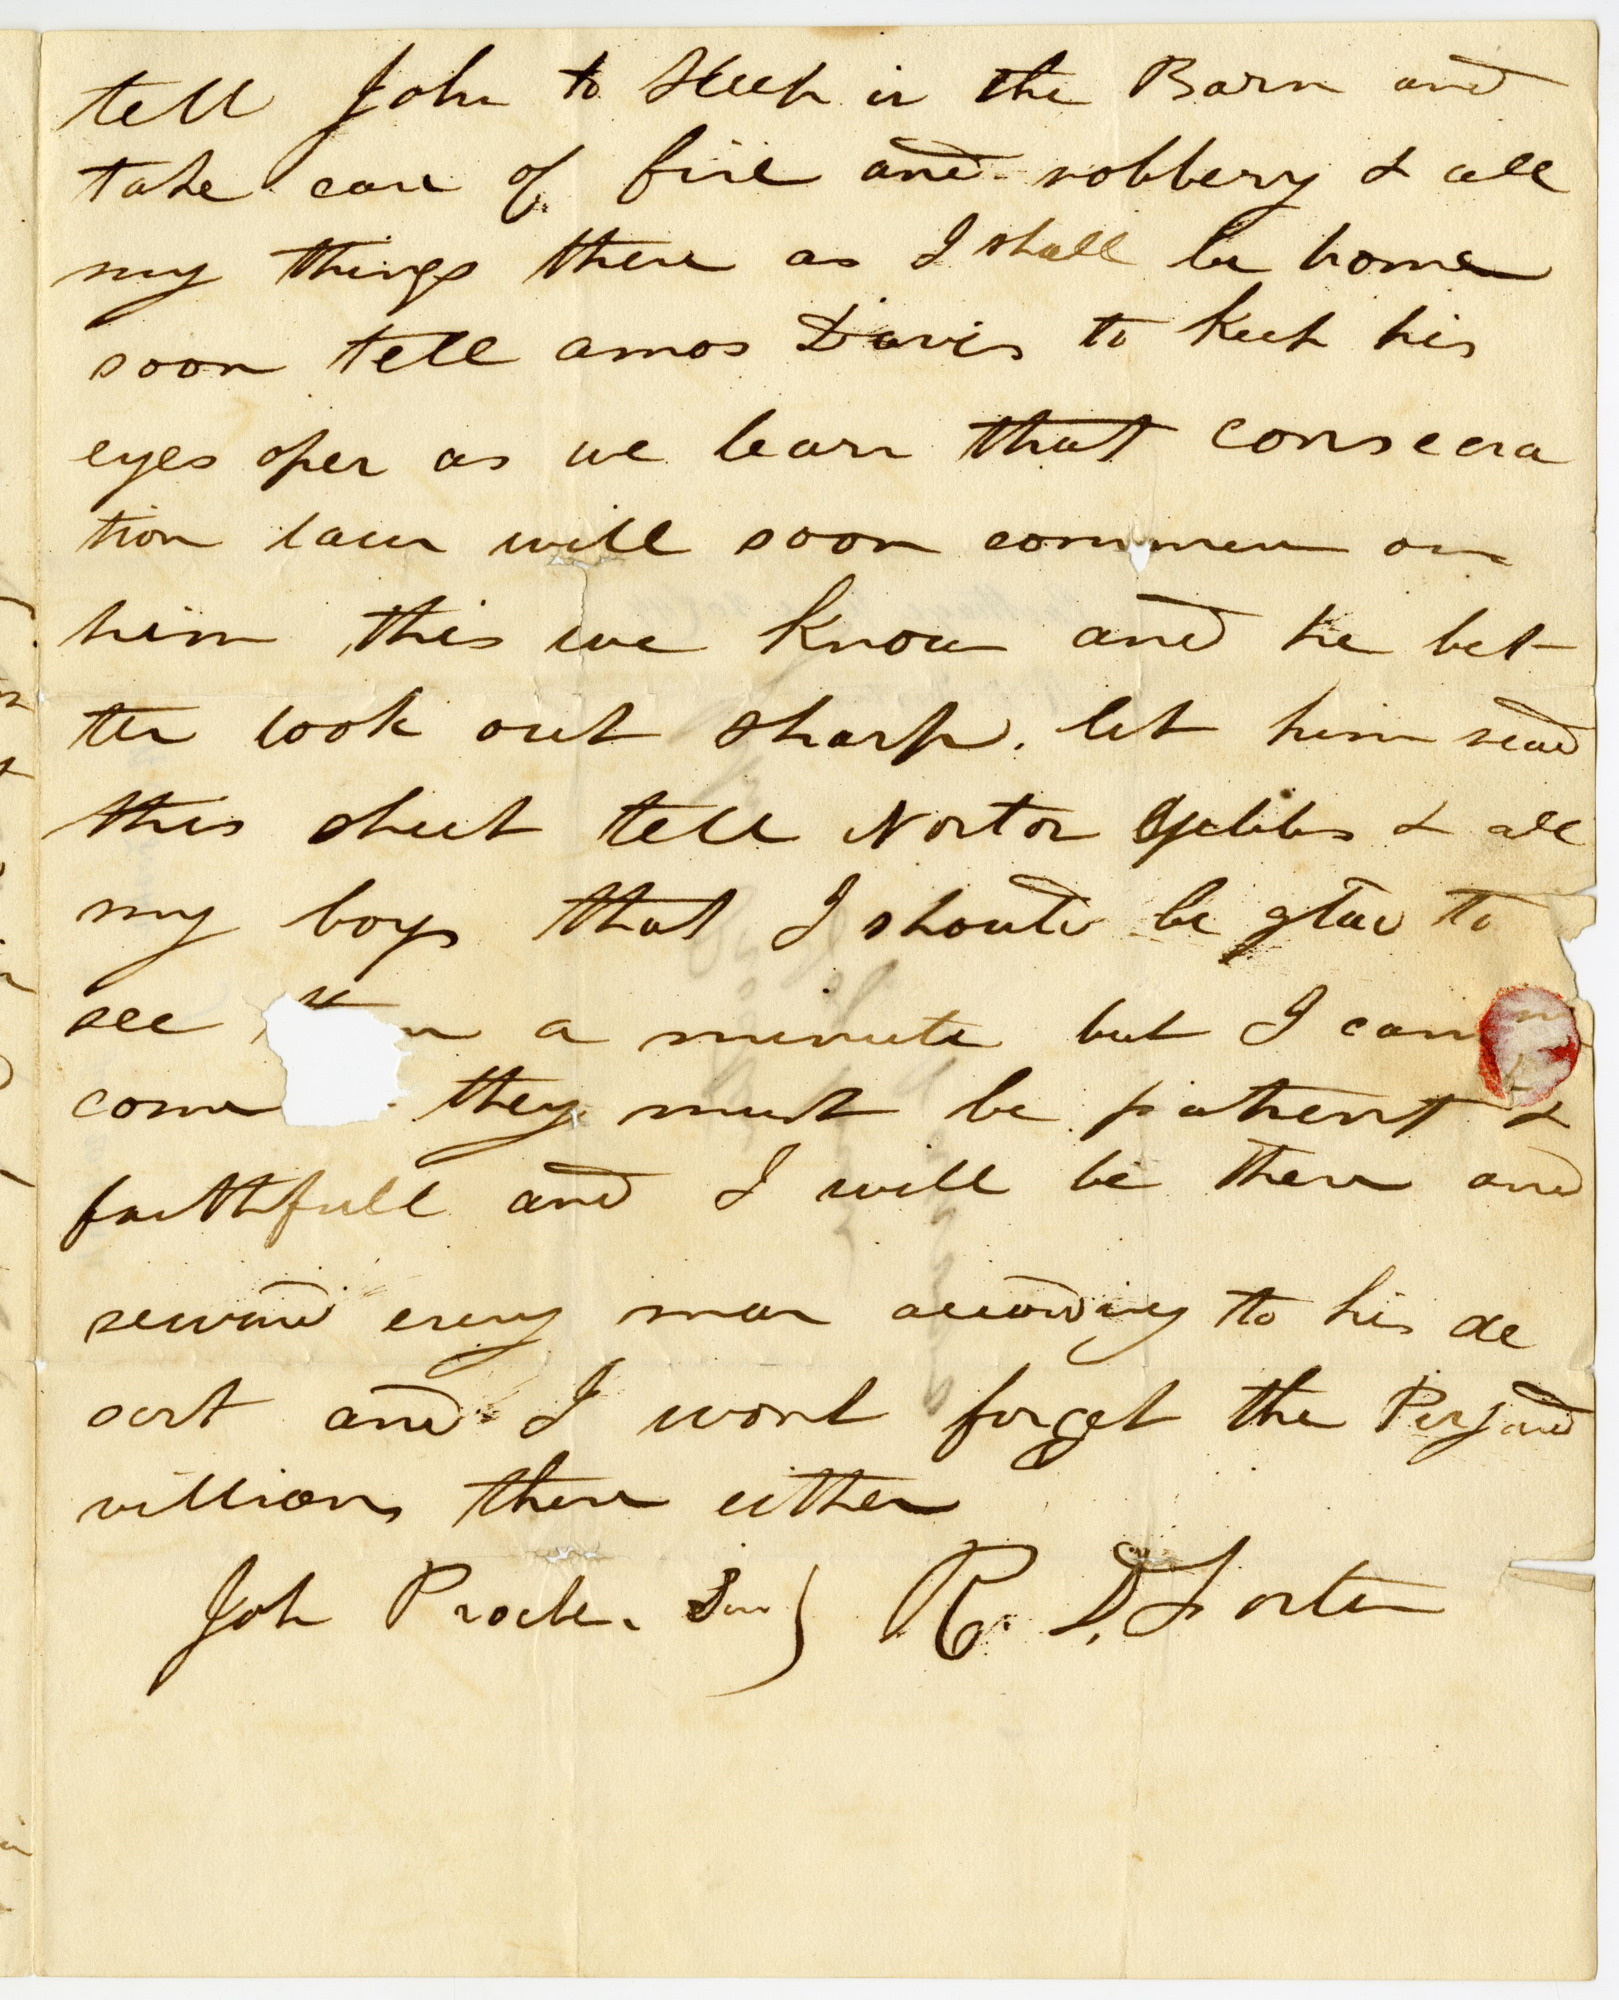 tell John to Sleep in the Barn and
take care of fire and robbery & all
my things there as I shall be home
soon tell amos Davis to Keep his
eyes open as we learn that consecra
tion law will soon commen on
him this we know and he bet
ter look out sharp. let him read
this sheet tell Norton Gibbs & all
my boys that I should be glad to
see a minute but I cannot
come they must be patient &
faithfull and I will be there and
reward every man according to his de
sert and I wont forget the Perjured
villions there either
Joh Procter R. D. Foster